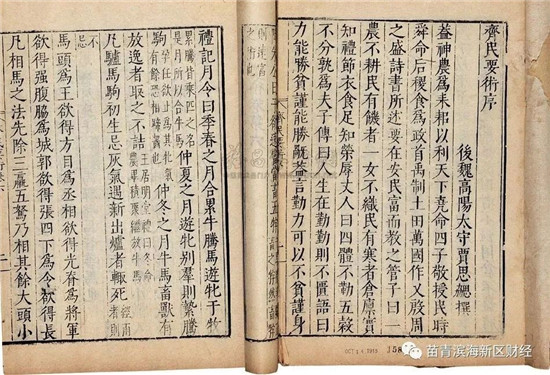 齊民要術序
後魏高陽太守賈思勰撰
蓋神農爲耒耜以利天下堯命四子敬授民時
舜命后稷食爲政首禹制土田萬國作乂殷周
之盛詩書所述要在安民富而教之管子曰一
農不耕民有饑者一女不織民有寒者倉廩實
知禮節衣食足知榮辱丈人曰四體不勤五穀
不分孰爲夫子傳曰人生在勤勤則不匱語曰
力能勝貧謹能勝禍蓋言勤力可以不貧謹身
禮記月令曰季春之月合累牛騰馬遊牝于牧
累騰皆乘匹之名
是月所以合牛馬
仲夏之月遊牝別羣則縶騰
駒
仲冬之月牛馬畜獸有
放逸者取之不詰
王居明堂禮曰冬命
農畢積聚繫牧牛馬
凡驢馬駒初生忌灰氣遇新出爐者輒死
經雨
者則
不忌
馬頭爲王欲得方目爲丞相欲得光脊爲將軍
欲得强腹脇爲城郭欲得張四下爲令欲得長
凡相馬之法先除三羸五駑乃相其餘大頭小
苗青滨海新区财经